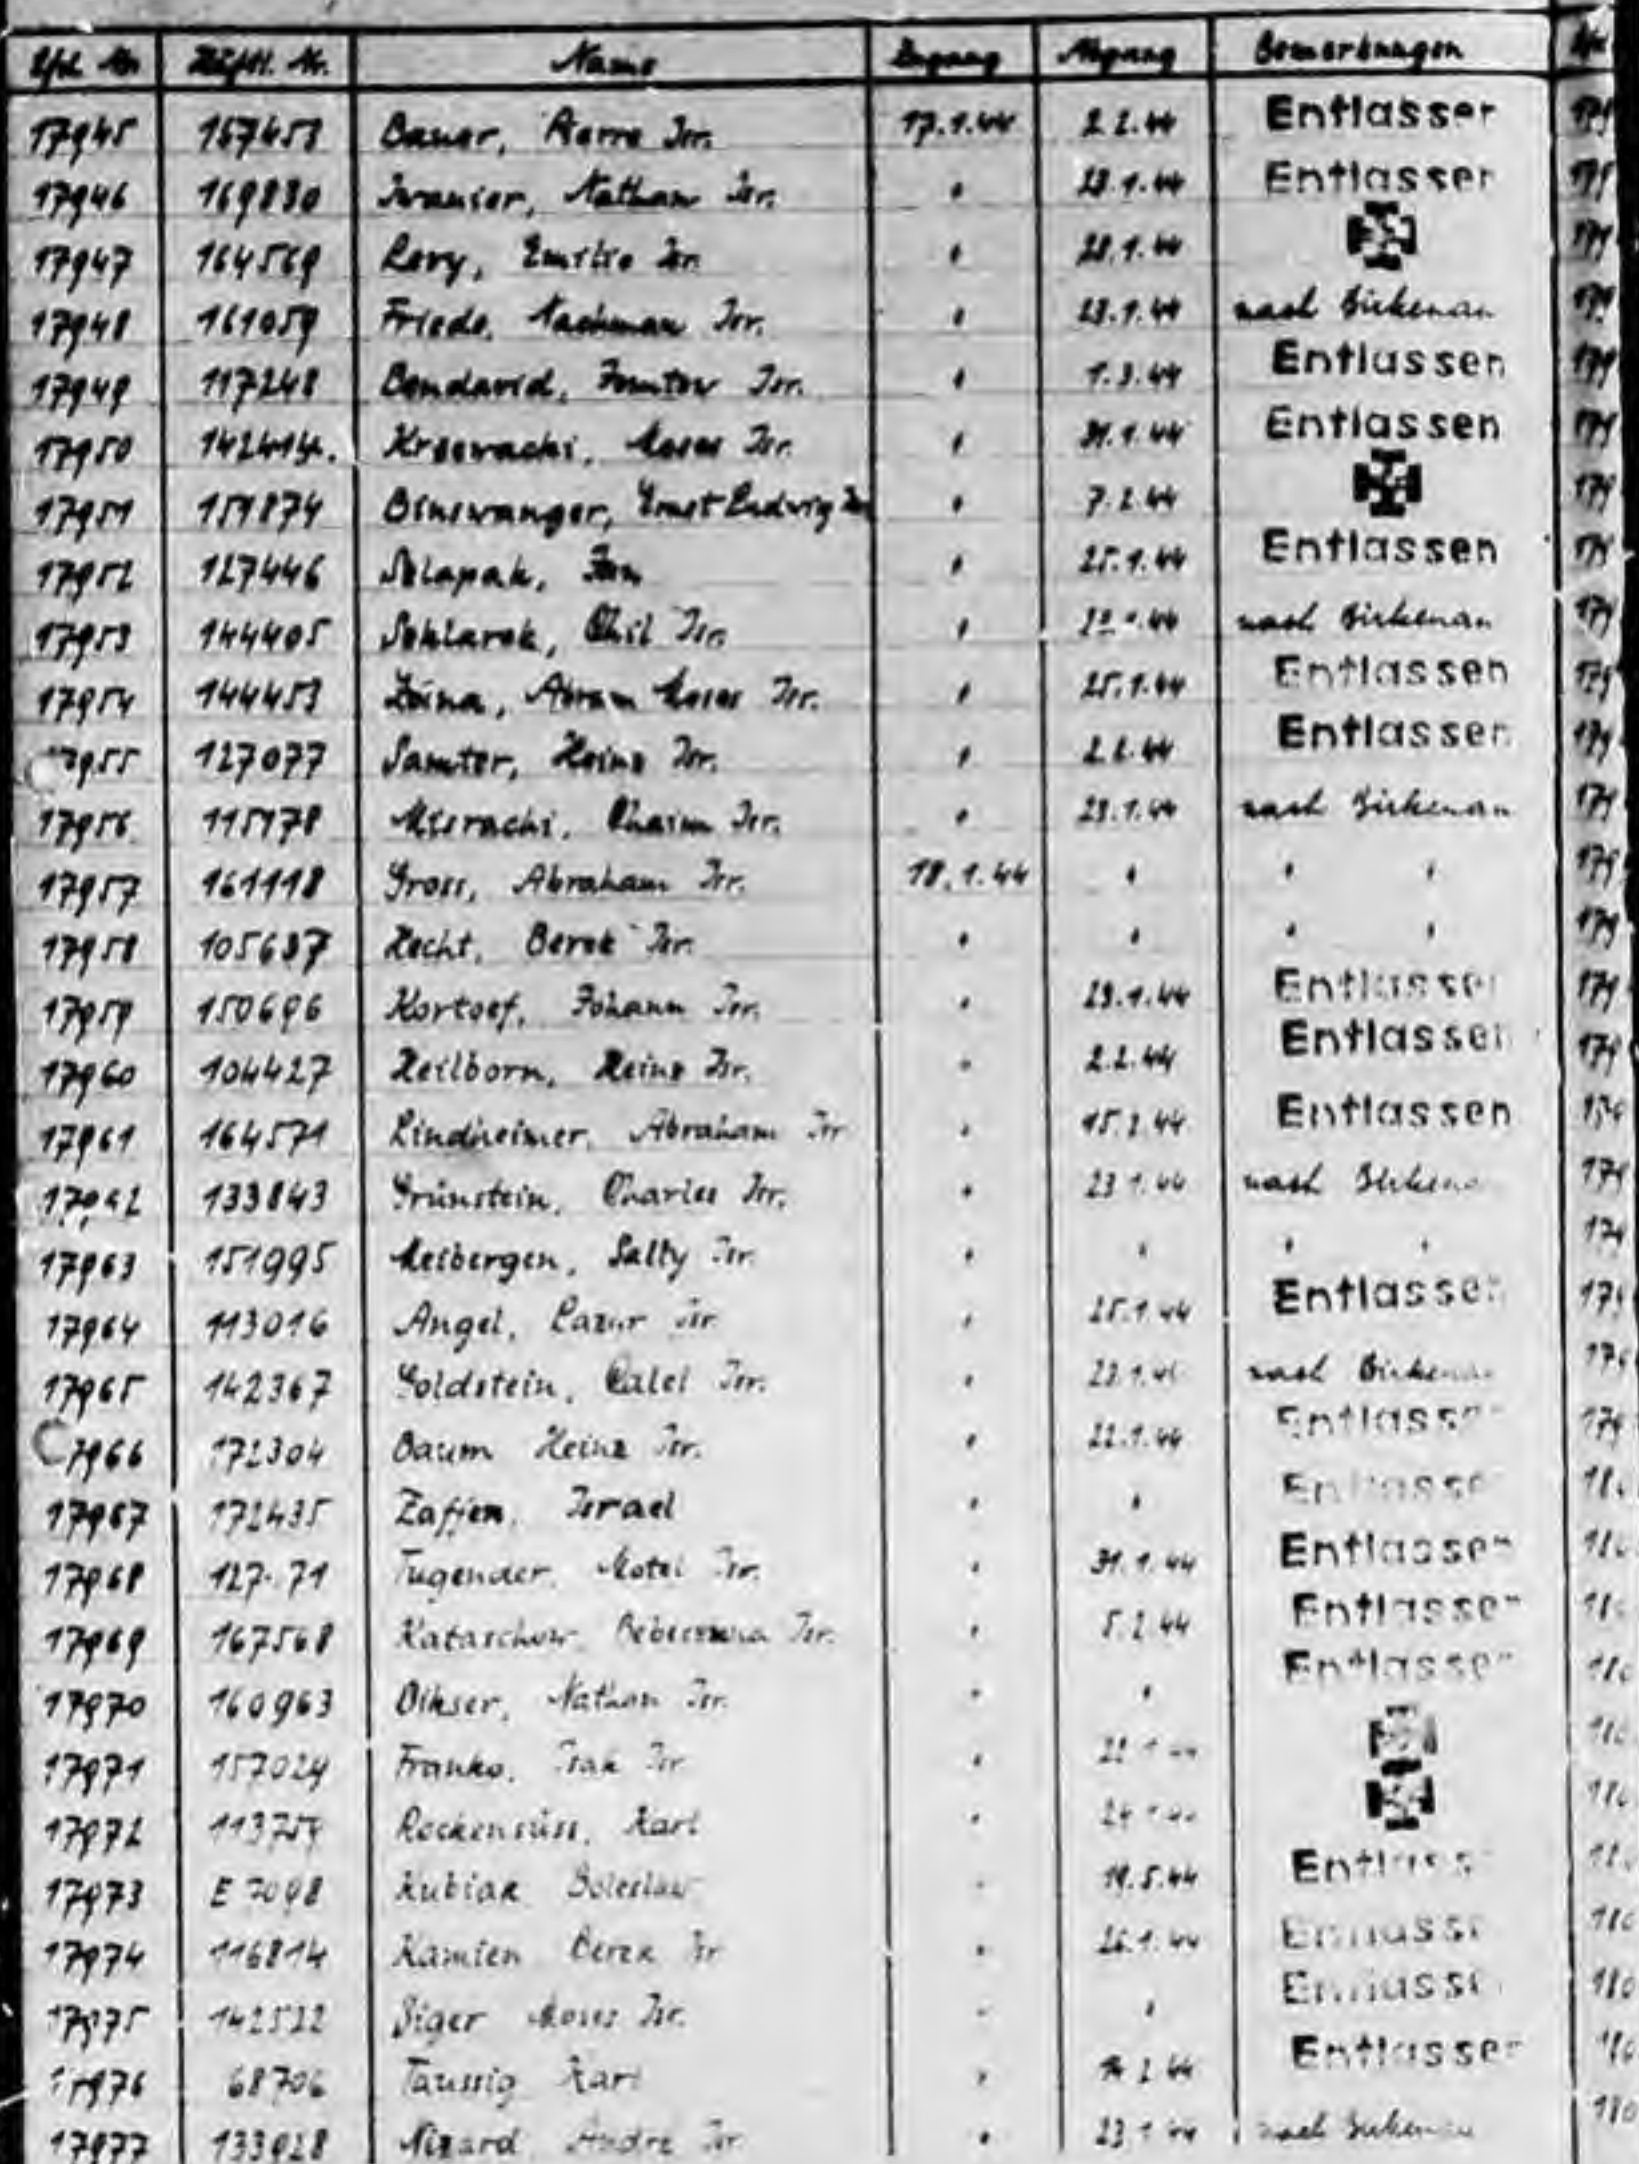 Lfd. Nr. Häftl. Nr. Name Zugang Abgang Bemerkungen
17945 167453 Bauer, Pierre Isr. 17.1.44 2.2.44 Entlassen
17946 169830 Iwanier, Nathan Isr. " 23.1.44 Entlassen
17947 164569 Levy, Emilio Isr. " 28.1.44
17948 161059 Friede, Nachman Isr. " 23.1.44 nach Birkenau
17949 117248 Bendavid, Isr. " 1.3.44 Entlassen
17950 142414 Moses Isr. " 31.1.44 Entlassen
17951 151874 Binswanger, Ernst Ludwig Isr. " 7.2.44
17952 127446 " 25.1.44 Entlassen
17953 144405 Sklarek, Chil Isr. " nach Birkenau
17954 144453 Abram Moses Isr. " 25.1.44 Entlassen
17955 127077 Samter, Heinz Isr. " 2.2.44 Entlassen
17956 115178 Misrachi, Chaim Isr. " 23.1.44 nach Birkenau
17957 161118 Gross, Abraham Isr. 18.1.44 " " "
17958 105637 Hecht, Berek Isr. " " " "
17959 150696 Kortoef, Johann Isr. " 29.1.44 Entlassen
17960 104427 Heilborn, Heinz Isr. " 2.2.44 Entlassen
17961 164571 Lindheimer, Abraham Isr. " 15.2.44 Entlassen
17962 133843 Grünstein, Charles Isr. " 23.1.44 nach Birkenau
17963 151995 Meibergen, Sally Isr. " " " "
17964 113016 Angel, Lazar Isr. " 25.1.44 Entlassen
17965 142367 Goldstein, Calel Isr. " 23.1.44 nach Birkenau
17966 172304 Baum Heinz Isr. " 22.1.44 Entlassen
17967 172435 Zaffen, Israel " " Entlassen
17968 Tugender, Motel Isr. " 31.1.44 Entlassen
17969 167568 Kataschow, Isr. " 5.2.44 Entlassen
17970 160963 Dikser, Nathan Isr. " " Entlassen
17971 157024 Franko, Isak Isr. "
17972 Rockensüss, Karl "
17973 E 7098 Kubiak Boleslaw " 19.5.44 Entlassen
17974 116814 Kamien Berek Isr. " 26.1.44 Entlassen
17975 142522 Siger Moses Isr. " " Entlassen
17976 68706 Taussig Karl " Entlassen
17977 133928 Nizard Andre Isr. " 23.1.44 nach Birkenau